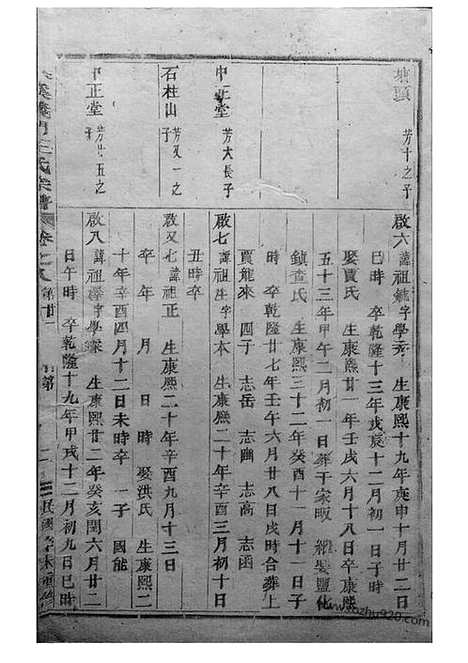 塘頭 芳十之子
啟六 諱祖 字學 生康熙十九年庚申十月廿二日
巳時 卒乾隆十三年戊辰十二月初一日子時
娶賈氏 生康熙廿一年壬戌六月十八日卒康熙
五十三年甲午二月初一日葬于家畈 繼娶鹽化
鎮查氏 生康熙三十二年癸酉十一月十一日子
時 卒乾隆廿七年壬午六月廿八日戌時合葬上
賈龍來 四子 志岳 志 志高 志函
中正堂 芳大長子
啟七 諱祖生字學本 生康熙二十年辛酉三月初十日
丑時卒
石柱山 芳又一之子
啟又七 諱祖正 生康熙二十年辛酉九月十三日
卒 年 月 日 時 娶洪氏 生康熙二
十年辛酉四月十二日未時卒 一子 國能
中正堂 芳廿五之子
啟八 諱祖澤字學 生康熙廿二年癸亥閏六月廿二
日午時 卒乾隆十九年甲戌十二月初九日巳時
義門王氏宗譜 卷之八 第廿一
民國辛未重修
www.zozhu920.com